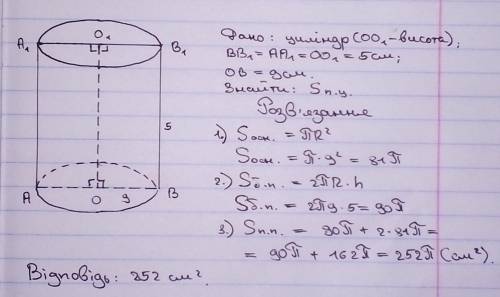 Дано: циліндр (OO₁-висота);
BB₁ = AA₁ = OO₁ = 5см;
OB = 9см.
Знайти: Sп.ц.
Розв'язання
1) Sосн. = πR²
Sосн. = π·9² = 81π
2) Sб.п. = 2πR·h
Sб.п. = 2π9·5 = 90π
3) Sп.п. = 90π + 2·81π =
= 90π + 162π = 252π (см²).
Відповідь: 252 см².
A₁ O₁ B₁
5
A O 9 B